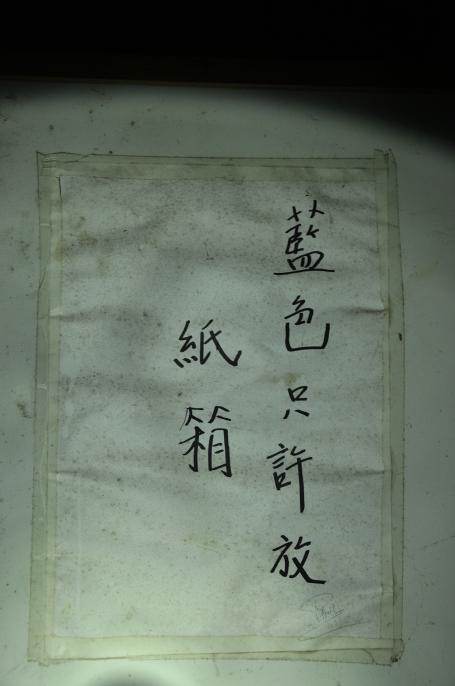 藍色只許放
紙箱